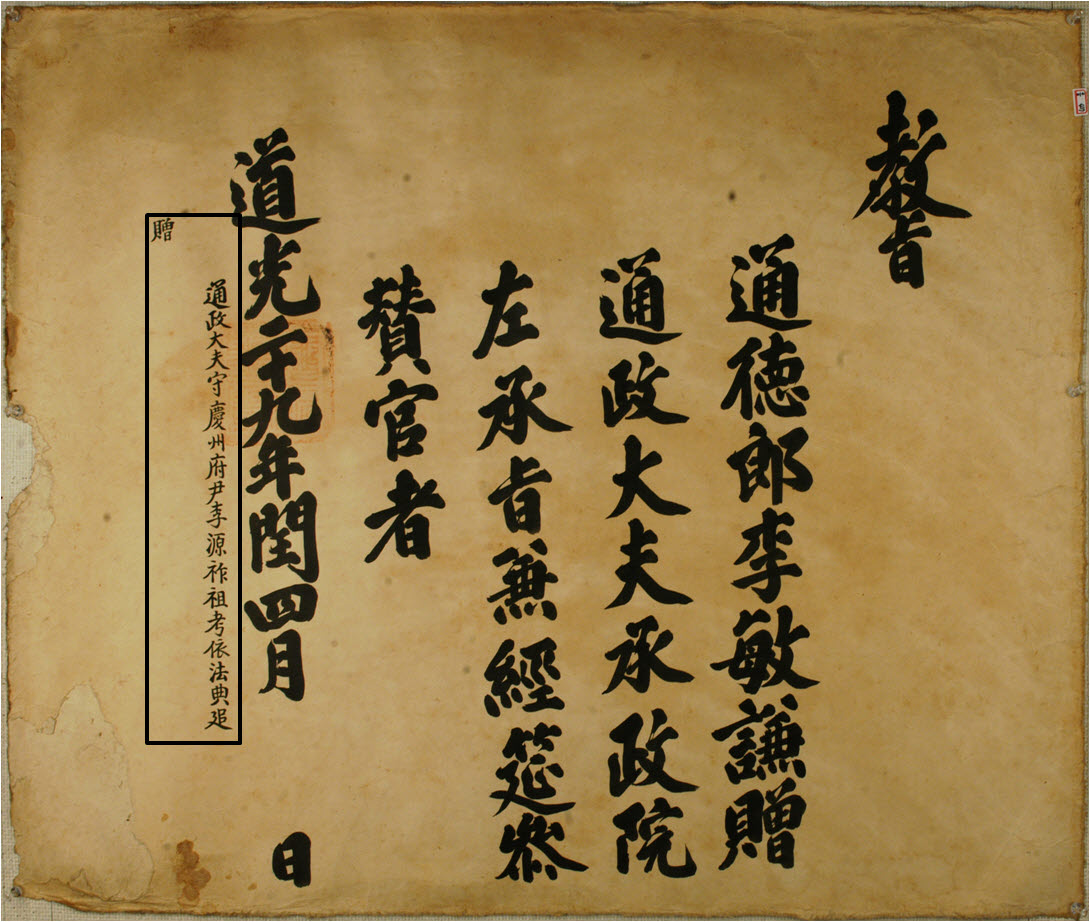 教旨
通德郎李敏謙贈
通政大夫承政院
左承旨兼經筵參
贊官者
道光二十九年閏四月 日
通政大夫守慶州府尹李源祚祖考依法典追
贈